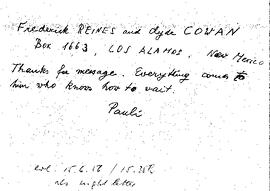 Frederick REINES and Clyde COWAN
Box 1663, LOS ALAMOS, New Mexico
Thanks for message. Everything comes to
him who knows how to wait.
Pauli
15.6.56 / 15.35h
night letter